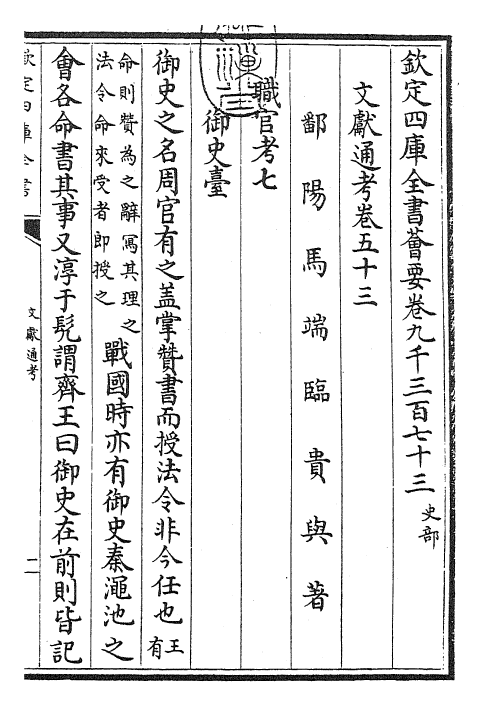 欽定四庫全書薈要卷九千三百七十三 史部
文獻通考卷五十三
鄱陽馬端臨貴與著
職官考七
御史臺
御史之名周官有之盖掌贊書而授法令非今任也 王有
命則贊為之辭寫其理之
法令命來受者即授之
戰國時亦有御史秦澠池之
會各命書其事又淳于髡謂齊王曰御史在前則皆記
欽定四庫全書
文獻通考